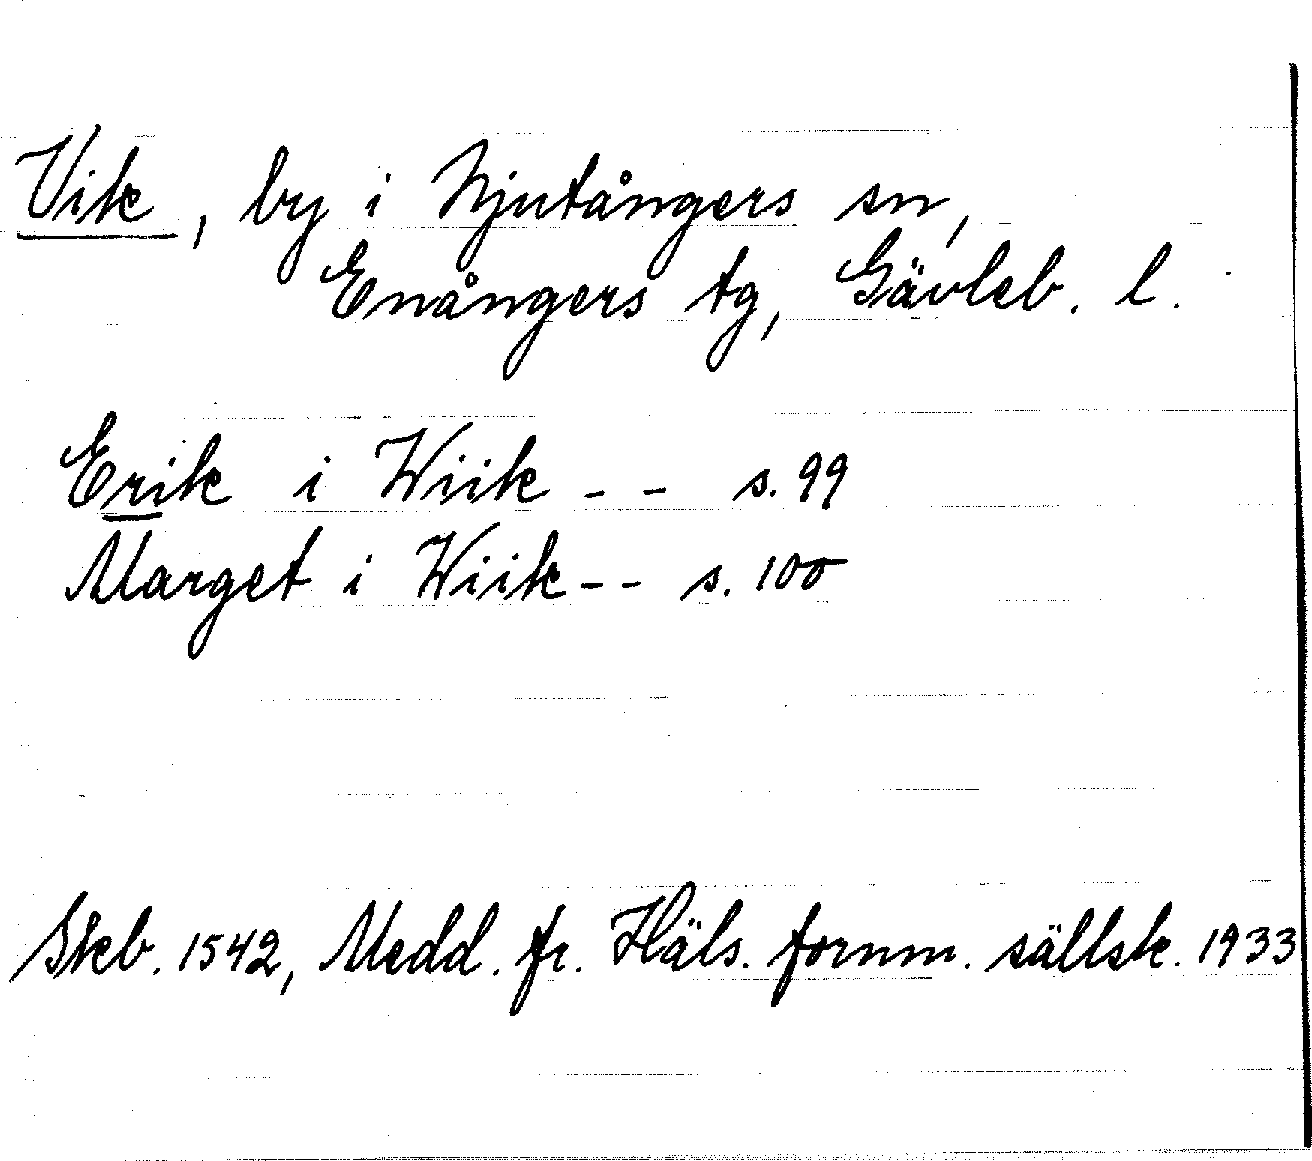 Vik, by i Njutångers sn,
Enångers tg, Gävleb. l.
Erik i Wiik - - s. 99
Marget i Wiik - - s. 100
Skb. 1542, Medd. fr. Häls. fornm. sällsk. 1933